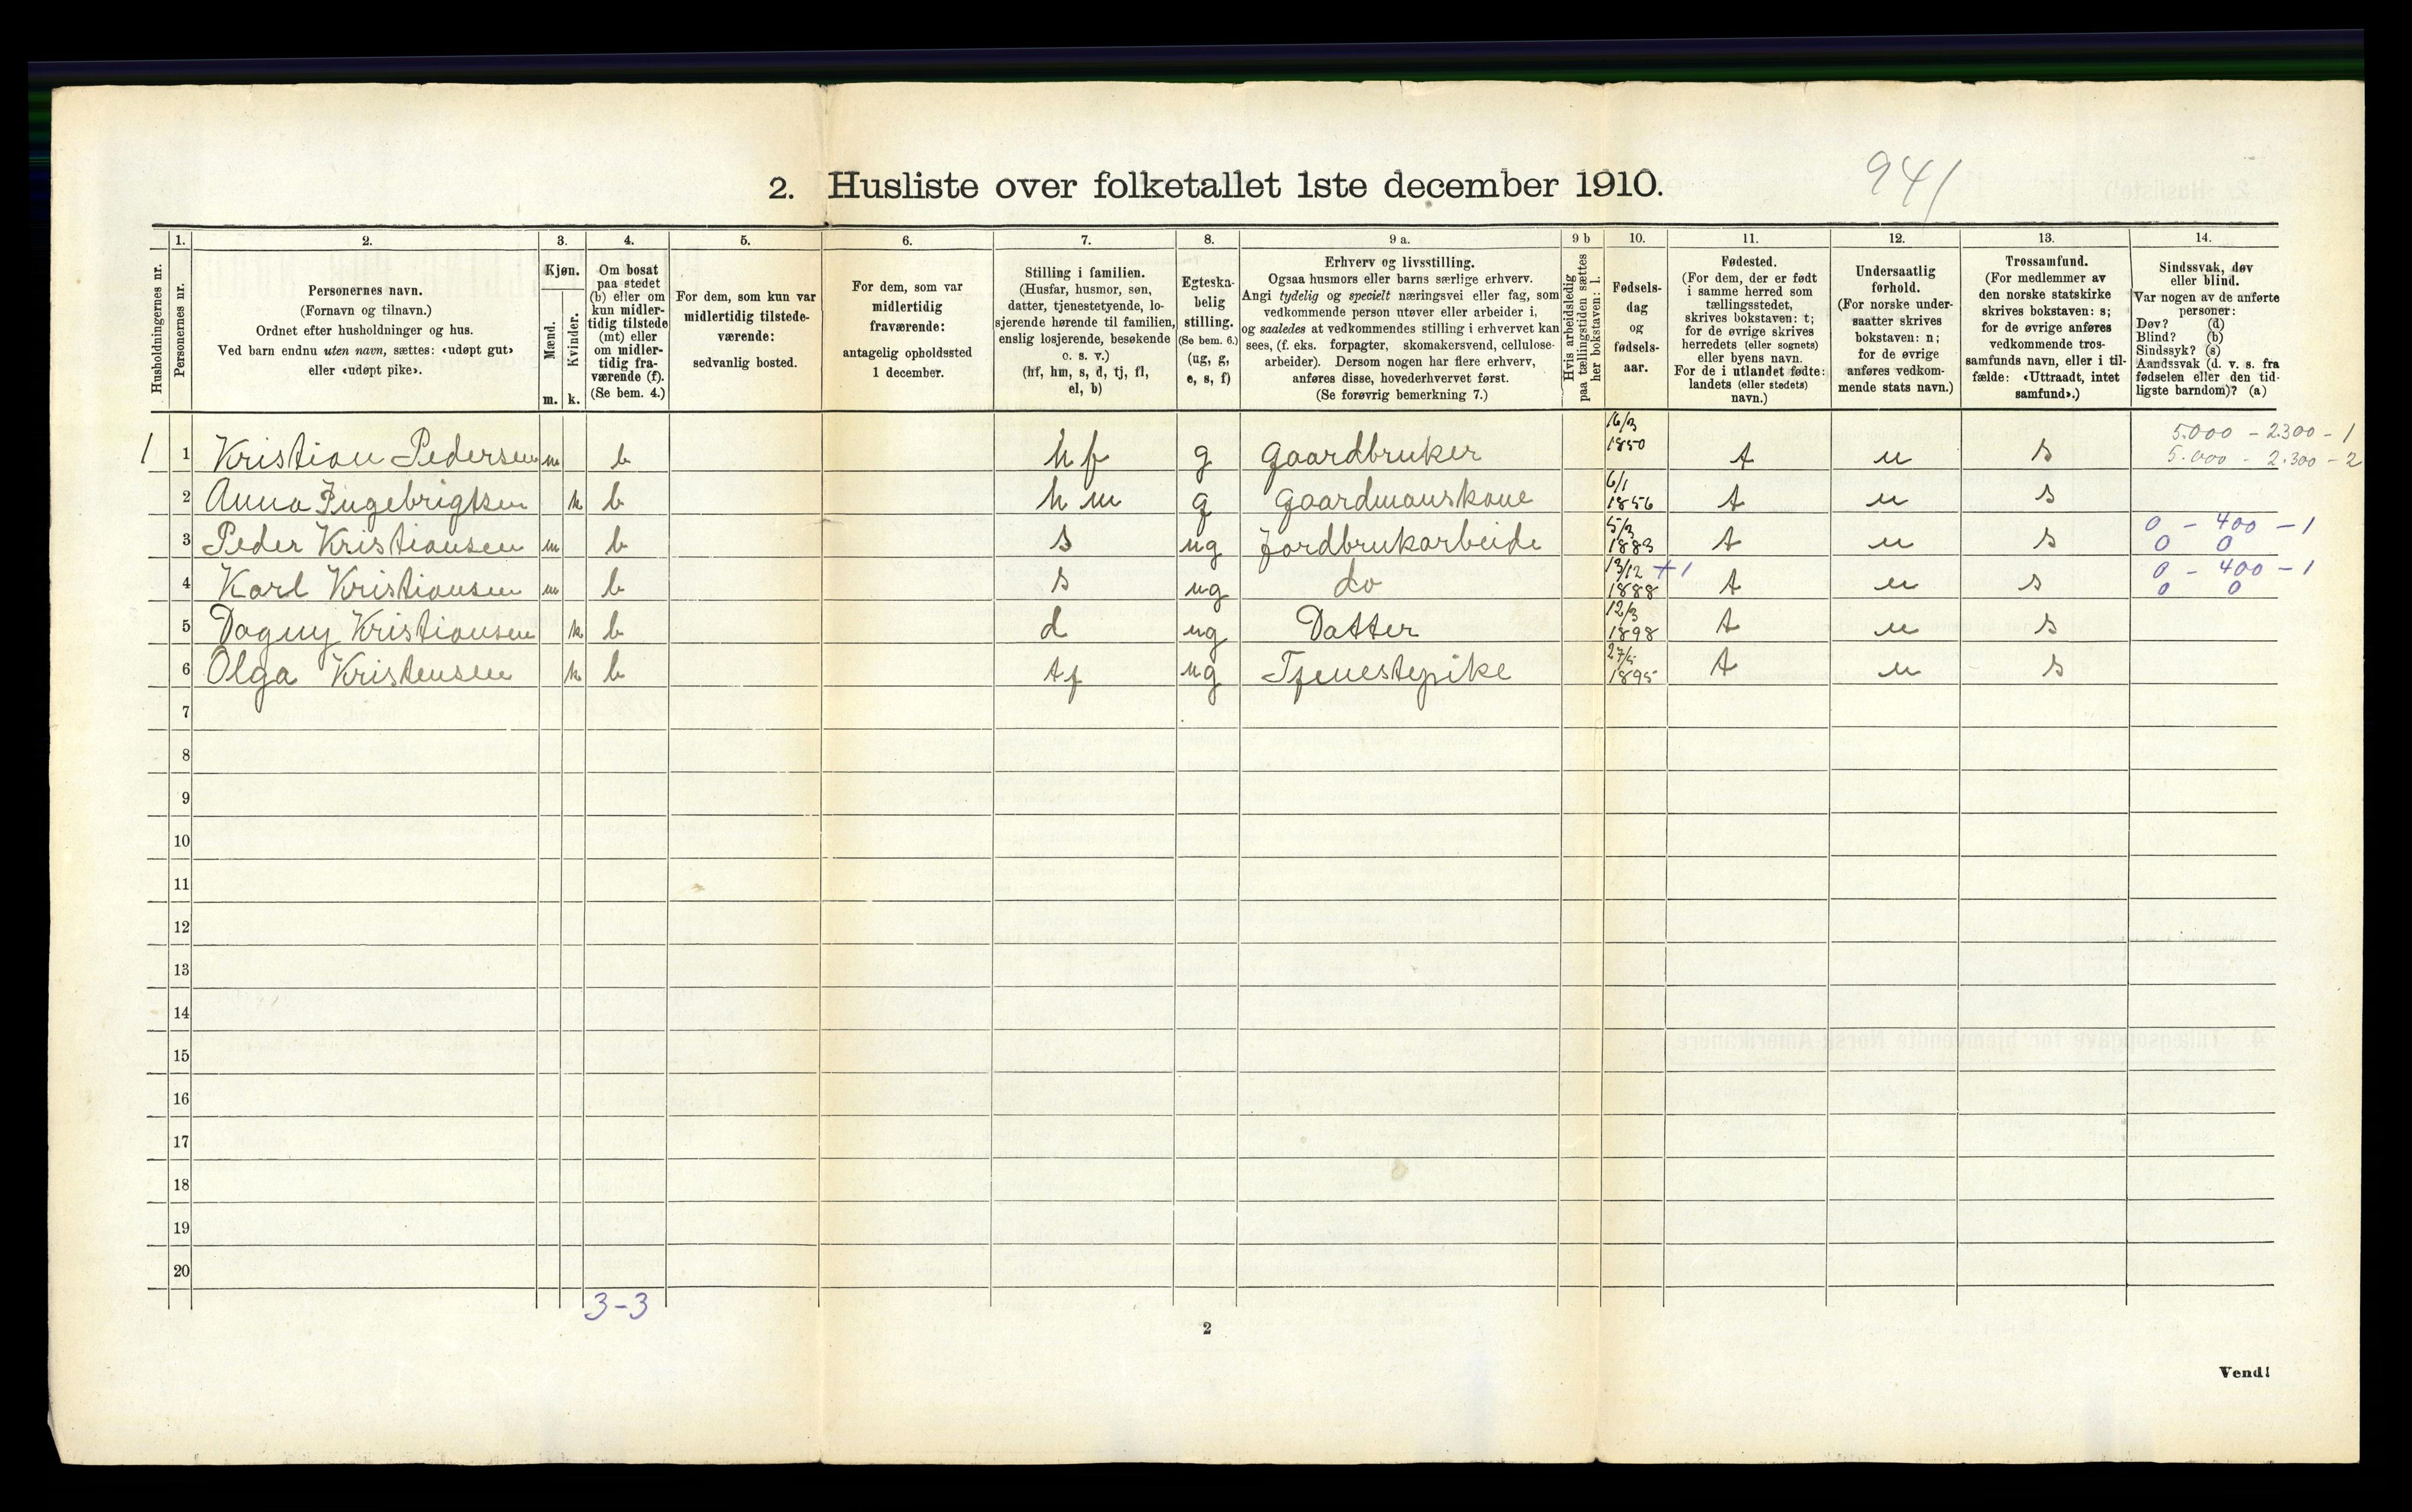 2. Husliste over folketallet 1ste december 1910.
941
Husholdningernes nr.
1.
Personernes nr.
2.
Personernes navn.
(Fornavn og tilnavn.)
Ordnet efter husholdninger og hus.
Ved barn endnu uten navn, sættes: «udøpt gut»
eller «udøpt pike».
3.
Kjøn.
Mænd.
Kvinder.
m. k.
4.
Om bosat
paa stedet
(b) eller om
kun midler-
tidig tilstede
(mt) eller
om midler-
tidig fra-
værende (f).
(Se bem. 4.)
5.
For dem, som kun var
midlertidig tilstede-
værende:
sedvanlig bosted.
6.
For dem, som var
midlertidig
fraværende:
antagelig opholdssted
1 december.
7.
Stilling i familien.
(Husfar, husmor, søn,
datter, tjenestetyende, lo-
sjerende hørende til familien,
enslig losjerende, besøkende
o. s. v.)
(hf, hm, s, d, tj, fl,
el, b)
8.
Egteska-
belig
stilling.
(Se bem. 6.)
(ug, g,
e, s, f)
9 a.
Erhverv og livsstilling.
Ogsaa husmors eller barns særlige erhverv.
Angi tydelig og specielt næringsvei eller fag, som
vedkommende person utøver eller arbeider i,
og saaledes at vedkommendes stilling i erhvervet kan
sees, (f. eks. forpagter, skomakersvend, cellulose-
arbeider). Dersom nogen har flere erhverv,
anføres disse, hovederhvervet først.
(Se forøvrig bemerkning 7.)
9 b
Hvis arbeidsledig
paa tællingstiden sættes
her bokstaven: l.
10.
Fødsels-
dag
og
fødsels-
aar.
11.
Fødested.
(For dem, der er født
i samme herred som
tællingsstedet,
skrives bokstaven: t;
for de øvrige skrives
herredets (eller sognets)
eller byens navn.
For de i utlandet fødte:
landets (eller stedets)
navn.)
12.
Undersaatlig
forhold.
(For norske under-
saatter skrives
bokstaven: n;
for de øvrige
anføres vedkom-
mende stats navn.)
13.
Trossamfund.
(For medlemmer av
den norske statskirke
skrives bokstaven: s;
for de øvrige anføres
vedkommende tros-
samfunds navn, eller i til-
fælde: «Uttraadt, intet
samfund».)
14.
Sindssvak, døv
eller blind.
Var nogen av de anførte
personer:
Døv? (d)
Blind? (b)
Sindssyk? (s)
Aandssvak (d. v. s. fra
fødselen eller den tid-
ligste barndom)? (a)
1 1 Kristian Pedersen m b hf g gaardbruker 16/3 1850 t n s 5.000 - 2300 - 1
5.000 - 2.300 - 2
2 Anna Ingebrigtsen k b hm g gaardmanskone 6/1 1856 t n s
3 Peder Kristiansen m b s ug Jordbrukarbeide 5/3 1883 t n s 0 - 400 - 1
0 0
4 Karl Kristiansen m b s ug do 13/12 1888 +1 t n s 0 - 400 - 1
0 0
5 Dagny Kristiansen k b d ug Datter 12/3 1898 t n s
6 Olga Kristensen k b tj ug Tjenestepike 1895 t n s
7
8
9
10
11
12
13
14
15
16
17
18
19
20
3-3
2
Vend!